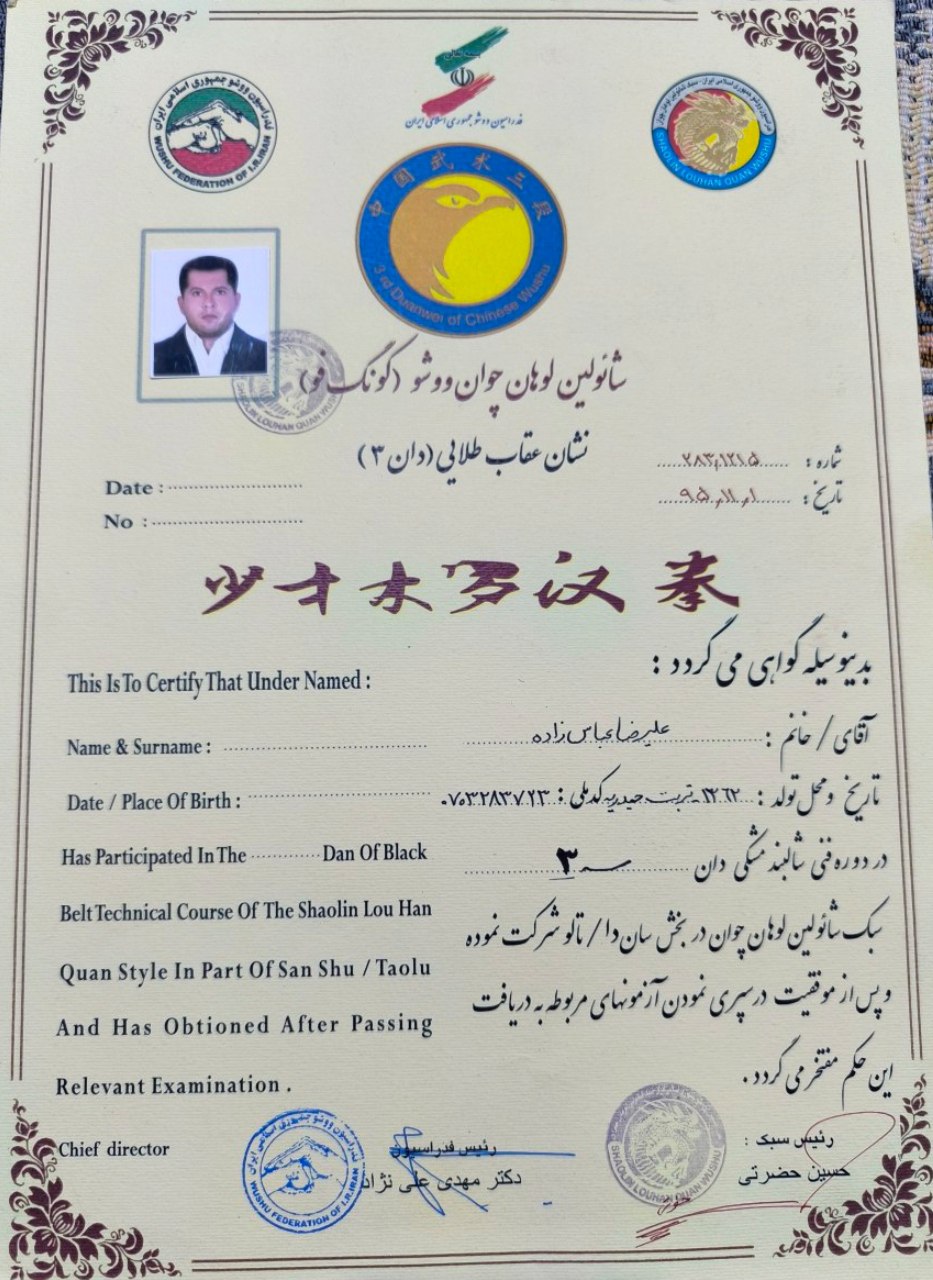 فدراسیون ووشو جمهوری اسلامی ایران
WUSHU FEDERATION OF I.R.IRAN
فدراسیون ووشو جمهوری اسلامی ایران
SHAOLIN LOUHAN QUAN WUSHU
中国武术三段
3 rd Duanwei of Chinese Wushu
SHAOLIN LOUHAN QUAN WUSHU
شائولین لوهان چوان ووشو (گونگ فو)
نشان عقاب طلایی (دان ۳)
شماره : ۲۸۳,۱۲۱۵
Date :
تاریخ : ۹۵,۱۱,۱
No :
少林罗汉拳
بدینوسیله گواهی می گردد :
This Is To Certify That Under Named :
آقای / خانم : علیرضا عباس زاده
Name & Surname :
تاریخ و محل تولد : ۱۳۶۲ - تربت حیدریه کد ملی : ۰۷۰۳۲۸۳۷۲۳
Date / Place Of Birth :
در دوره فنی شالبند مشکی دان ۳
Has Participated In The Dan Of Black
سبک شائولین لوهان چوان در بخش سان دا / تالو شرکت نموده
Belt Technical Course Of The Shaolin Lou Han
و پس از موفقیت در سپری نمودن آزمونهای مربوطه به دریافت
Quan Style In Part Of San Shu / Taolu
این حکم مفتخر می گردد .
And Has Obtioned After Passing
Relevant Examination .
Chief director
رئیس فدراسیون
دکتر مهدی علی نژاد
رئیس سبک :
حسین حضرتی
فدراسیون ووشو جمهوری اسلامی ایران
WUSHU FEDERATION OF I.R.IRAN
SHAOLIN LOUHAN QUAN WUSHU